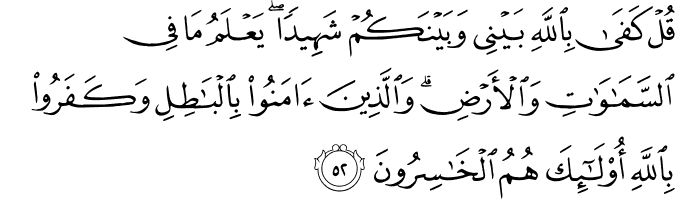 قُلۡ كَفَىٰ بِٱللَّهِ بَيۡنِي وَبَيۡنَكُمۡ شَهِيدٗاۖ يَعۡلَمُ مَا فِي
ٱلسَّمَٰوَٰتِ وَٱلۡأَرۡضِۗ وَٱلَّذِينَ ءَامَنُواْ بِٱلۡبَٰطِلِ وَكَفَرُواْ
بِٱللَّهِ أُوْلَٰٓئِكَ هُمُ ٱلۡخَٰسِرُونَ ٥٢